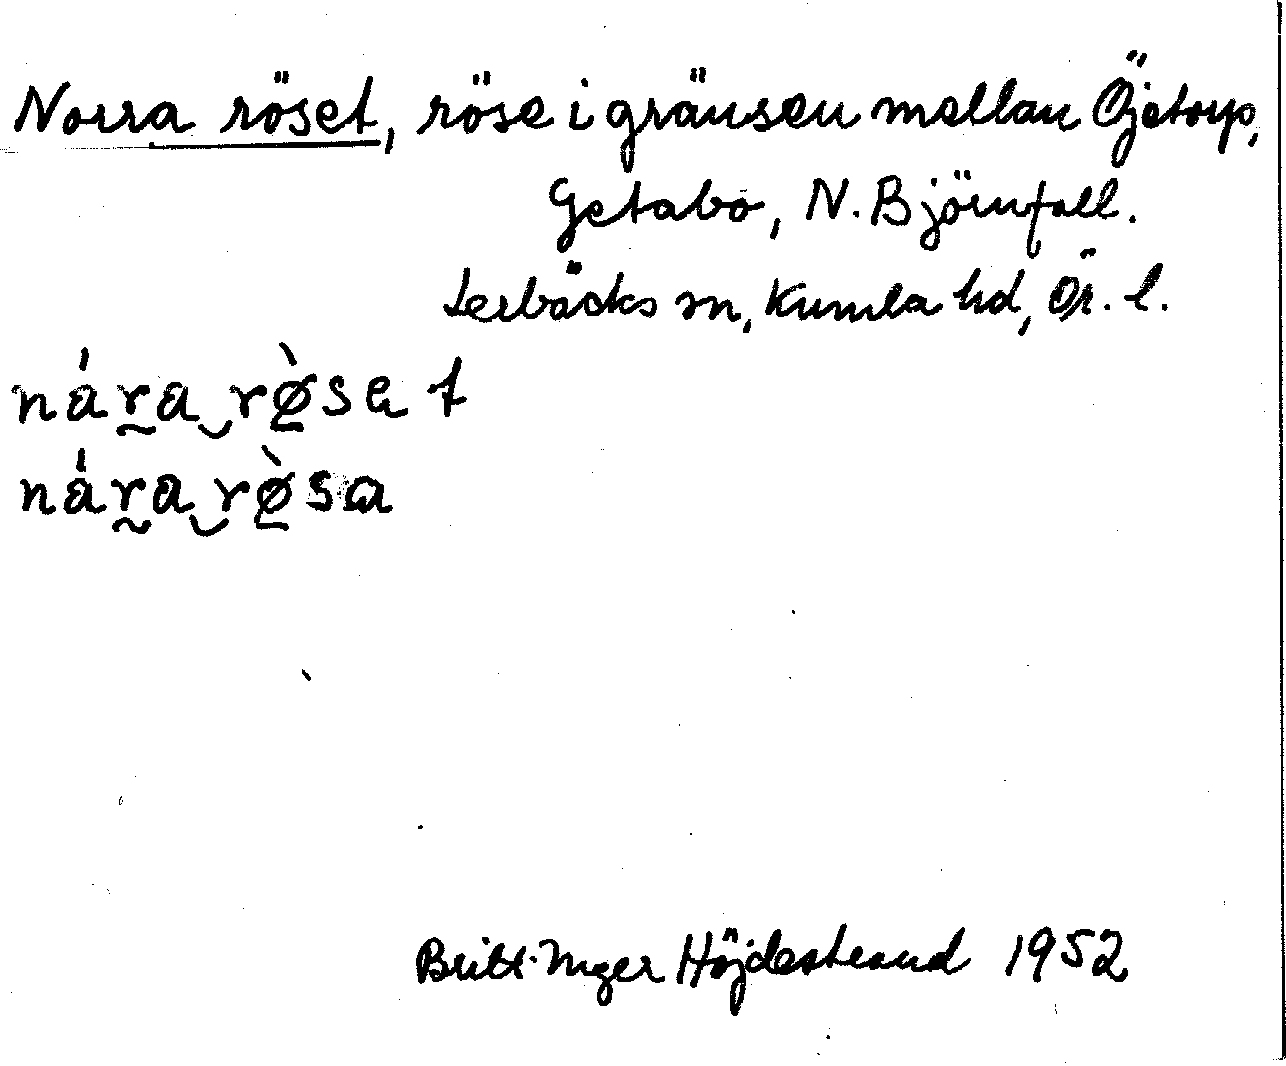 Norra röset, röse i gränsen mellan Öjetorp,
Getabo, N. Björnfall.
Lerbäcks sn, Kumla hd, Ör. l.
nára rø̀set
nára rø̀sa
Britt-Inger Höjdestrand 1952